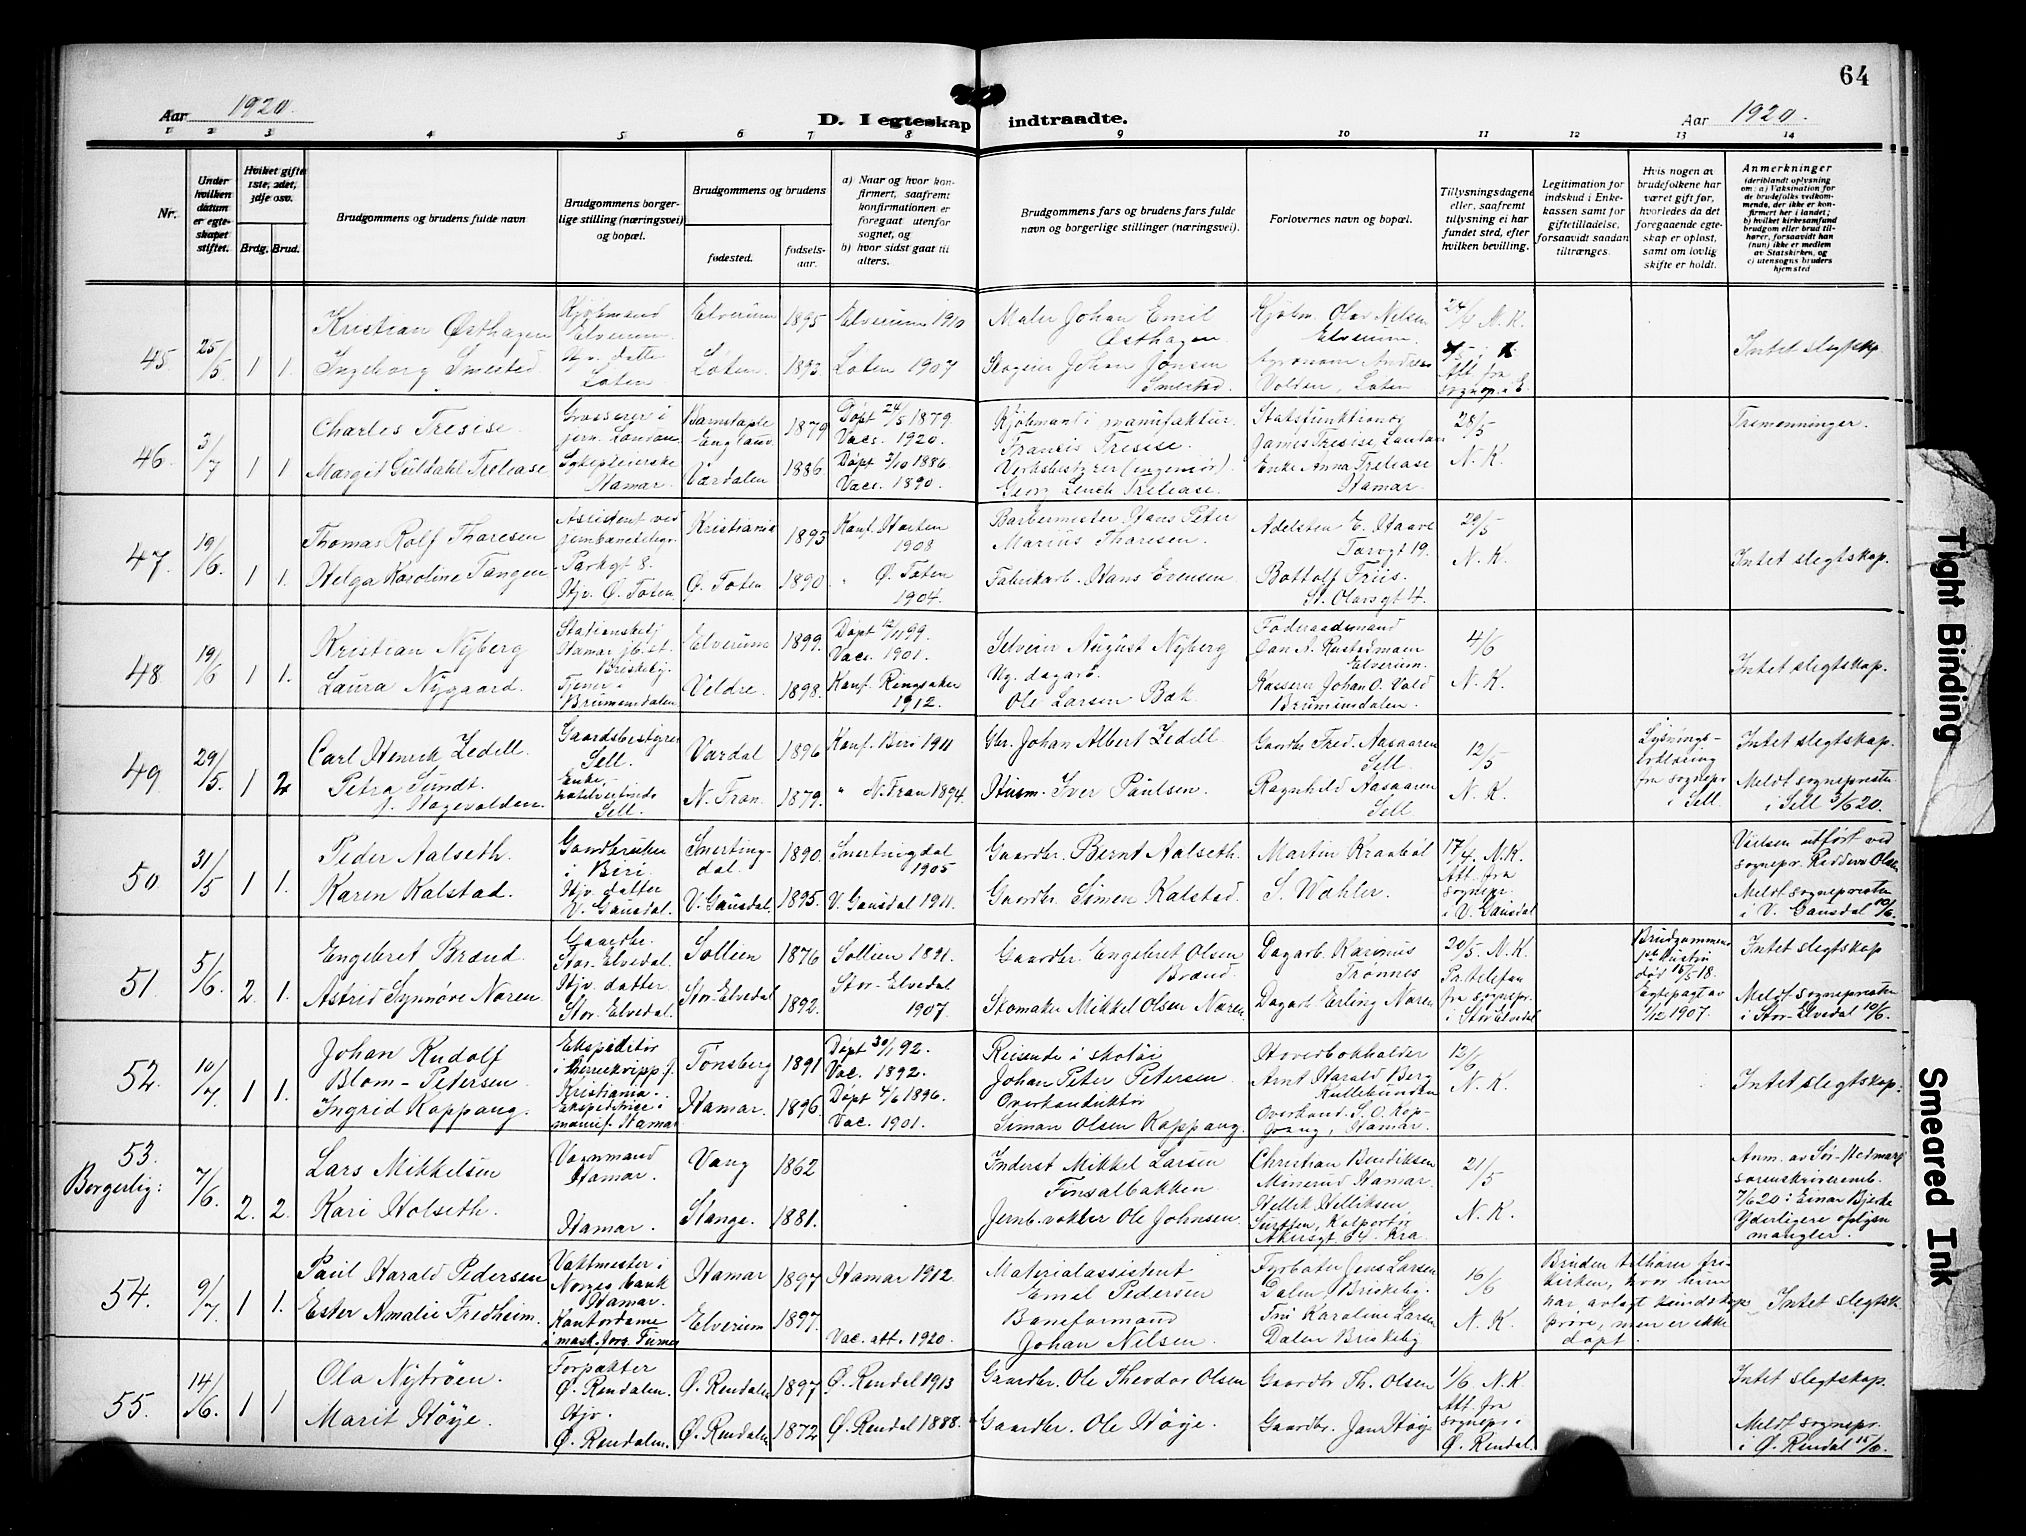 64
Aar 1920.
D. I egteskap indtraadte.
Aar 1920.
1 2 3 4 5 6 7 8 9 10 11 12 13 14
Nr.
Under hvilken datum er egteskapet stiftet.
Hvilket gifte 1ste, 2det, 3dje osv.
Brdg. Brud.
Brudgommens og brudens fulde navn
Brudgommens borgerlige stilling (næringsvei) og bopæl.
Brudgommens og brudens
fødested.
fødselsaar.
a) Naar og hvor konfirmert, saafremt konfirmationen er foregaat utenfor sognet, og
b) hvor sidst gaat til alters.
Brudgommens fars og brudens fars fulde navn og borgerlige stillinger (næringsvei).
Forlovernes navn og bopæl.
Tillysningsdagene eller, saafremt tillysning ei har fundet sted, efter hvilken bevilling.
Legitimation for indskud i Enkekassen samt for giftetilladelse, forsaavidt saadan tiltrænges.
Hvis nogen av brudefolkene har været gift før, hvorledes da det foregaaende egteskap er opløst, samt om lovlig skifte er holdt.
Anmerkninger (deriblandt oplysning om: a) Vaksination for de brudefolks vedkommende, der ikke er konfirmert her i landet; b) hvilket kirkesamfund brudgom eller brud tilhører, forsaavidt han (hun) ikke er medlem av Statskirken, og c) utensogns bruders hjemsted
45. 25/5 1 1.
Kristian Østhagen
Kjøbmand Elverum.
Elverum 1895 Elverum 1910
Maler Johan Emil Østhagen
Kjøbm. Olav Nilsen Elverum.
N. K.
Ingeborg Smestad
Hjv. datter Løten.
Løten. 1893 Løten 1907
Johan Jonsen Smestad.
Agronom Andreas Volden, Løten
Att. fra sognep. i E.
Intet slegtskp
46. 3/7 1 1
Charles Tresise.
Grosserer i jern. London.
Barnstaple England 1879
Døpt 24/5 1879. Vacs. 1920.
Kjøbmand i manufaktur. Francis Tresise.
James Tresise, London
28/5 N. K.
Tremenninger.
Margit Guldahl Trelease
Sykepleierske Hamar.
Værdalen 1886.
Døpt 3/10 1886. Vacc. 1890.
Verksbestyrer (ingeniør). Trelease.
Enke Anna Trelease Hamar.
47. 19/6 1 1.
Thomas Rolf Thoresen
Assistent ved jernbanetelegr. Parkgt 8.
Kristiania 1893 Konf. Horten 1908
Barbermester Hans Peter Marius Thoresen.
Adelsten E. Haave Torvgt 19.
29/5 N. K.
Helga Karoline Tangen
Hjv. Ø. Toten.
Ø. Toten 1890. " Ø. Toten 1904.
Fabrikarb. Hans Evensen
Bottolf Friis. St. Olavsgt 4.
Intet slegtskap.
48 19/6 1 1.
Kristian Nyberg
Stationsbetj. Hamar jb.st. Briskebj.
Elverum 1899.
Døpt 12/11 99. Vacs. 1901.
Selvein August Nyberg
Føderaadsmand Elverum.
4/6 N. K.
Laura Nygaard.
Tjener Brumunddalen
Veldre. 1898. Konf. Ringsaker 1912.
Ng. dagarb. Ole Larsen Bak
Kasserer Johan O. Vold Brumunddalen.
Intet slegtskap.
49 29/5. 1 2
Carl Henrik Zedell
Gaardsbestyrer Sell.
Vardal 1896 Konf. Biri 1911
Gbr. Johan Albert Zedell
Gaardbr Fred. Aasaaren Sell.
12/5 N. K.
Lysnings-erklæring fra sognepr. i Sell.
Intet slegtskap.
Petra Sundt. f. Hagevolden.
Enke Sell.
N. Fron. 1879. " N. Fron 1894.
Husm. Iver Paulsen.
Ragnhild Aasaaren Sell
Meldt sognepresten i Sell 3/6 20.
50 31/5 1 1.
Peder Aalseth.
Gaardbruker i Biri
Snertingdal. 1890. Snertingdal 1905
Gaardbr. Bernt Aalseth.
Martin Kraabøl
17/4. N.K. Att. fra sognepr. i V. Gausdal
Vielsen utført ved sognepr. Olsen
Karen Kalstad.
Hjv. datter V. Gausdal.
V. Gausdal. 1895. V. Gausdal 1911.
Gaardbr. Simen Kalstad.
S. Wahler.
Meldt sognepresten i V. Gausdal 10/6.
51. 5/6. 2. 1.
Engebret Brænd.
Gaardbr. Stor-Elvedal.
Sollien 1876 Sollien 1891.
Gaardbr. Engebret Olsen Brænd.
Dagarb. Rasmus Trønnes
20/5. N. K. Pr. telefon fra sognepr. i Stor Elvedal
Brudgommens 1ste hustru død 15/5 18. Egtepagt av 1/12 1907.
Intet slegtskap
Astrid Synnøve Noren.
Hjv. datter Stor. Elvedal.
Stor-Elvedal 1892. Stor-Elvedal 1907.
Skomaker Mikkel Olsen Noren
Dagarb Erling Noren
Meldt sognepresten i Stor-Elvedal 10/6.
52. 10/7. 1 1.
Johan Rudolf Blom-Petersen
Ekspeditør Kristiania.
Tønsberg 1891
Døpt 30/1 92. Vac. 1892.
Reisende i skotøi Johan Peter Petersen
Hovedbokholder Arnt Harald Berg
12/6 N. K.
Ingrid Koppang.
Ekspeditrice i manuf. Hamar
Hamar. 1896
Døpt 4/6 1896. Vac. 1901.
Overkonduktør Simon Olsen Koppang.
Overkond. S. O. Koppang, Hamar.
Intet slegtskap.
53.
Borgerlig: 7/6. 2. 2.
Lars Mikkelsen
Vognmand Hamar.
Vang 1862
Inderst Mikkel Larsen Finsalbakken
Christian Bendiksen Hamar.
21/5 N. K.
Kari Holseth.
Hamar.
Stange. 1881.
Jernb. vokter Ole Johnsen.
Hellik Helliksen Kolportør Akersgt. 64. Kra.
Anm. av Sør-Hedmark sorenskriveremb. 7/6 20: Einar Bjerke Yderligere oplysn mangler.
54. 9/7. 1 1.
Paul Harald Pedersen
Vaktmester i Norges bank Hamar.
Hamar 1897 Hamar 1912.
Materialassistent Emil Pedersen
Fyrbøter Jens Larsen Dalen Briskeby.
16/6 N. K.
Bruden tilhører frikirken, hvor hun har avlagt kundskapsprøve, men er ikke døpt.
Intet slegtsk.
Ester Amalie Fredheim.
Kontordame
Elverum 1897. Vac. att. 1920.
Baneformand Johan Nilsen.
Frk Karoline Larsen Dalen Briskeby
55. 14/6. 1 1.
Ola Nytrøen.
Forpakter Ø. Rendalen.
Ø. Rendalen 1897 Ø. Rendal 1913
Gaardbr. Ole Theodor Olsen
Gaardbr Th. Olsen
1/6. N. K. Att. fra sognepr. i Ø. Rendal.
Intet slegtskap.
Marit Høye.
Hjv. Ø. Rendalen.
Ø. Rendalen 1872 Ø. Rendal 1888.
Gaardbr. Ole Høye.
Gaardbr. Jon Høye
Meldt sognepr. i Ø. Rendal 15/6.
Tight Binding
Smeared Ink